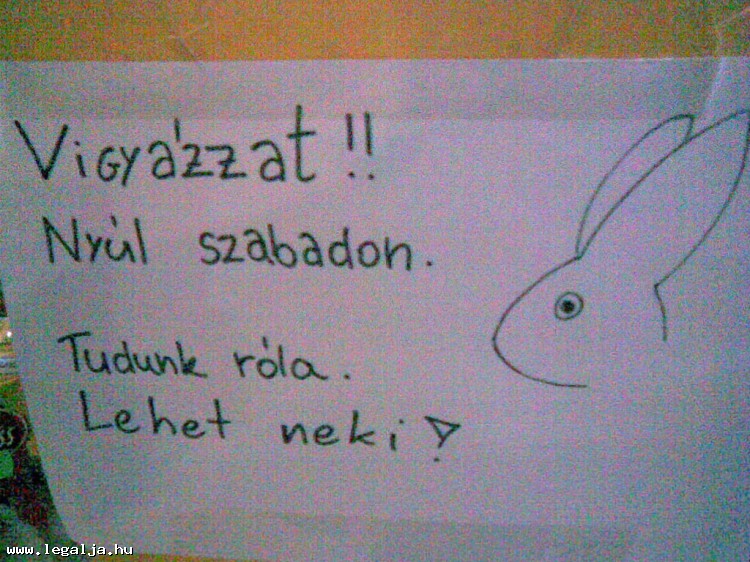 Vigyázzat!!
Nyúl szabadon.
Tudunk róla.
Lehet neki!
www.legalja.hu